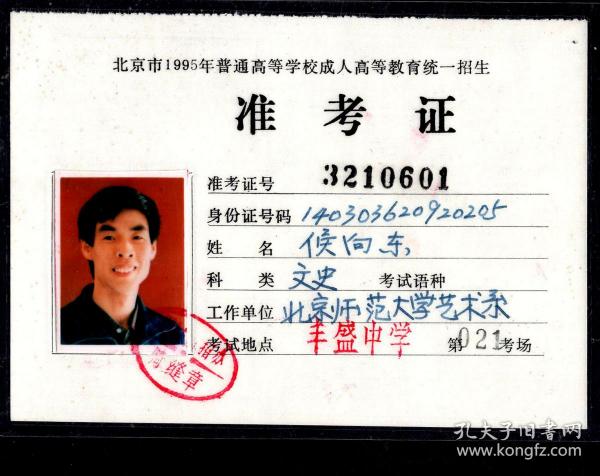 北京市1995年普通高等学校成人高等教育统一招生
准考证
准考证号 3210601
身份证号码 140303620920205
姓名 侯向东
科类 文史 考试语种
工作单位 北京师范大学艺术系
考试地点 丰盛中学 第021考场
招办
骑缝章
孔夫子旧书网
www.kongfz.com